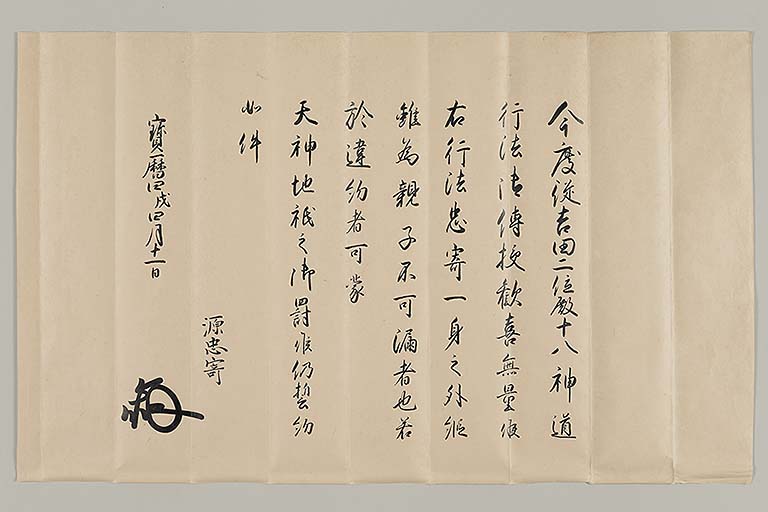 今度従吉田二位殿十八神道
行法御傳授歓喜無量候
右行法忠寄一身之外縦
雖為親子不可漏者也若
於違約者可蒙
天神地祇之御罰候仍誓約
如件
寶暦四戌四月十一日
源忠寄